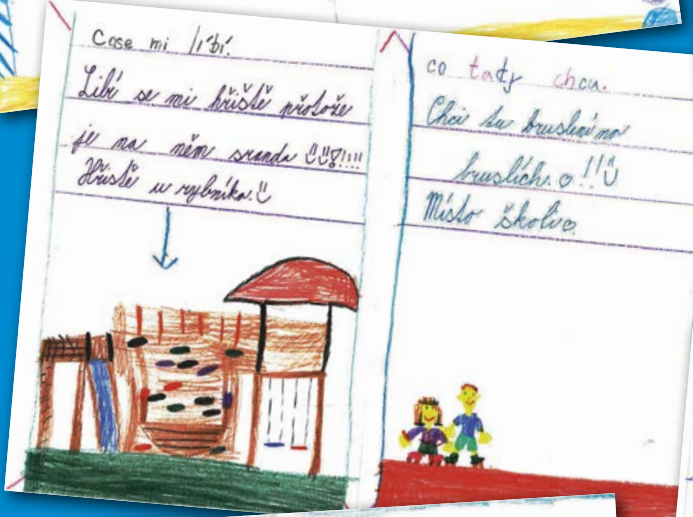 Cose mi líbí.
Libí se mi hřiště protože
je na něm sranda !!!!
Hřiště u rybníka.
co tady chcu.
Chci tu bruslení na
bruslích. !!
Místo školi.